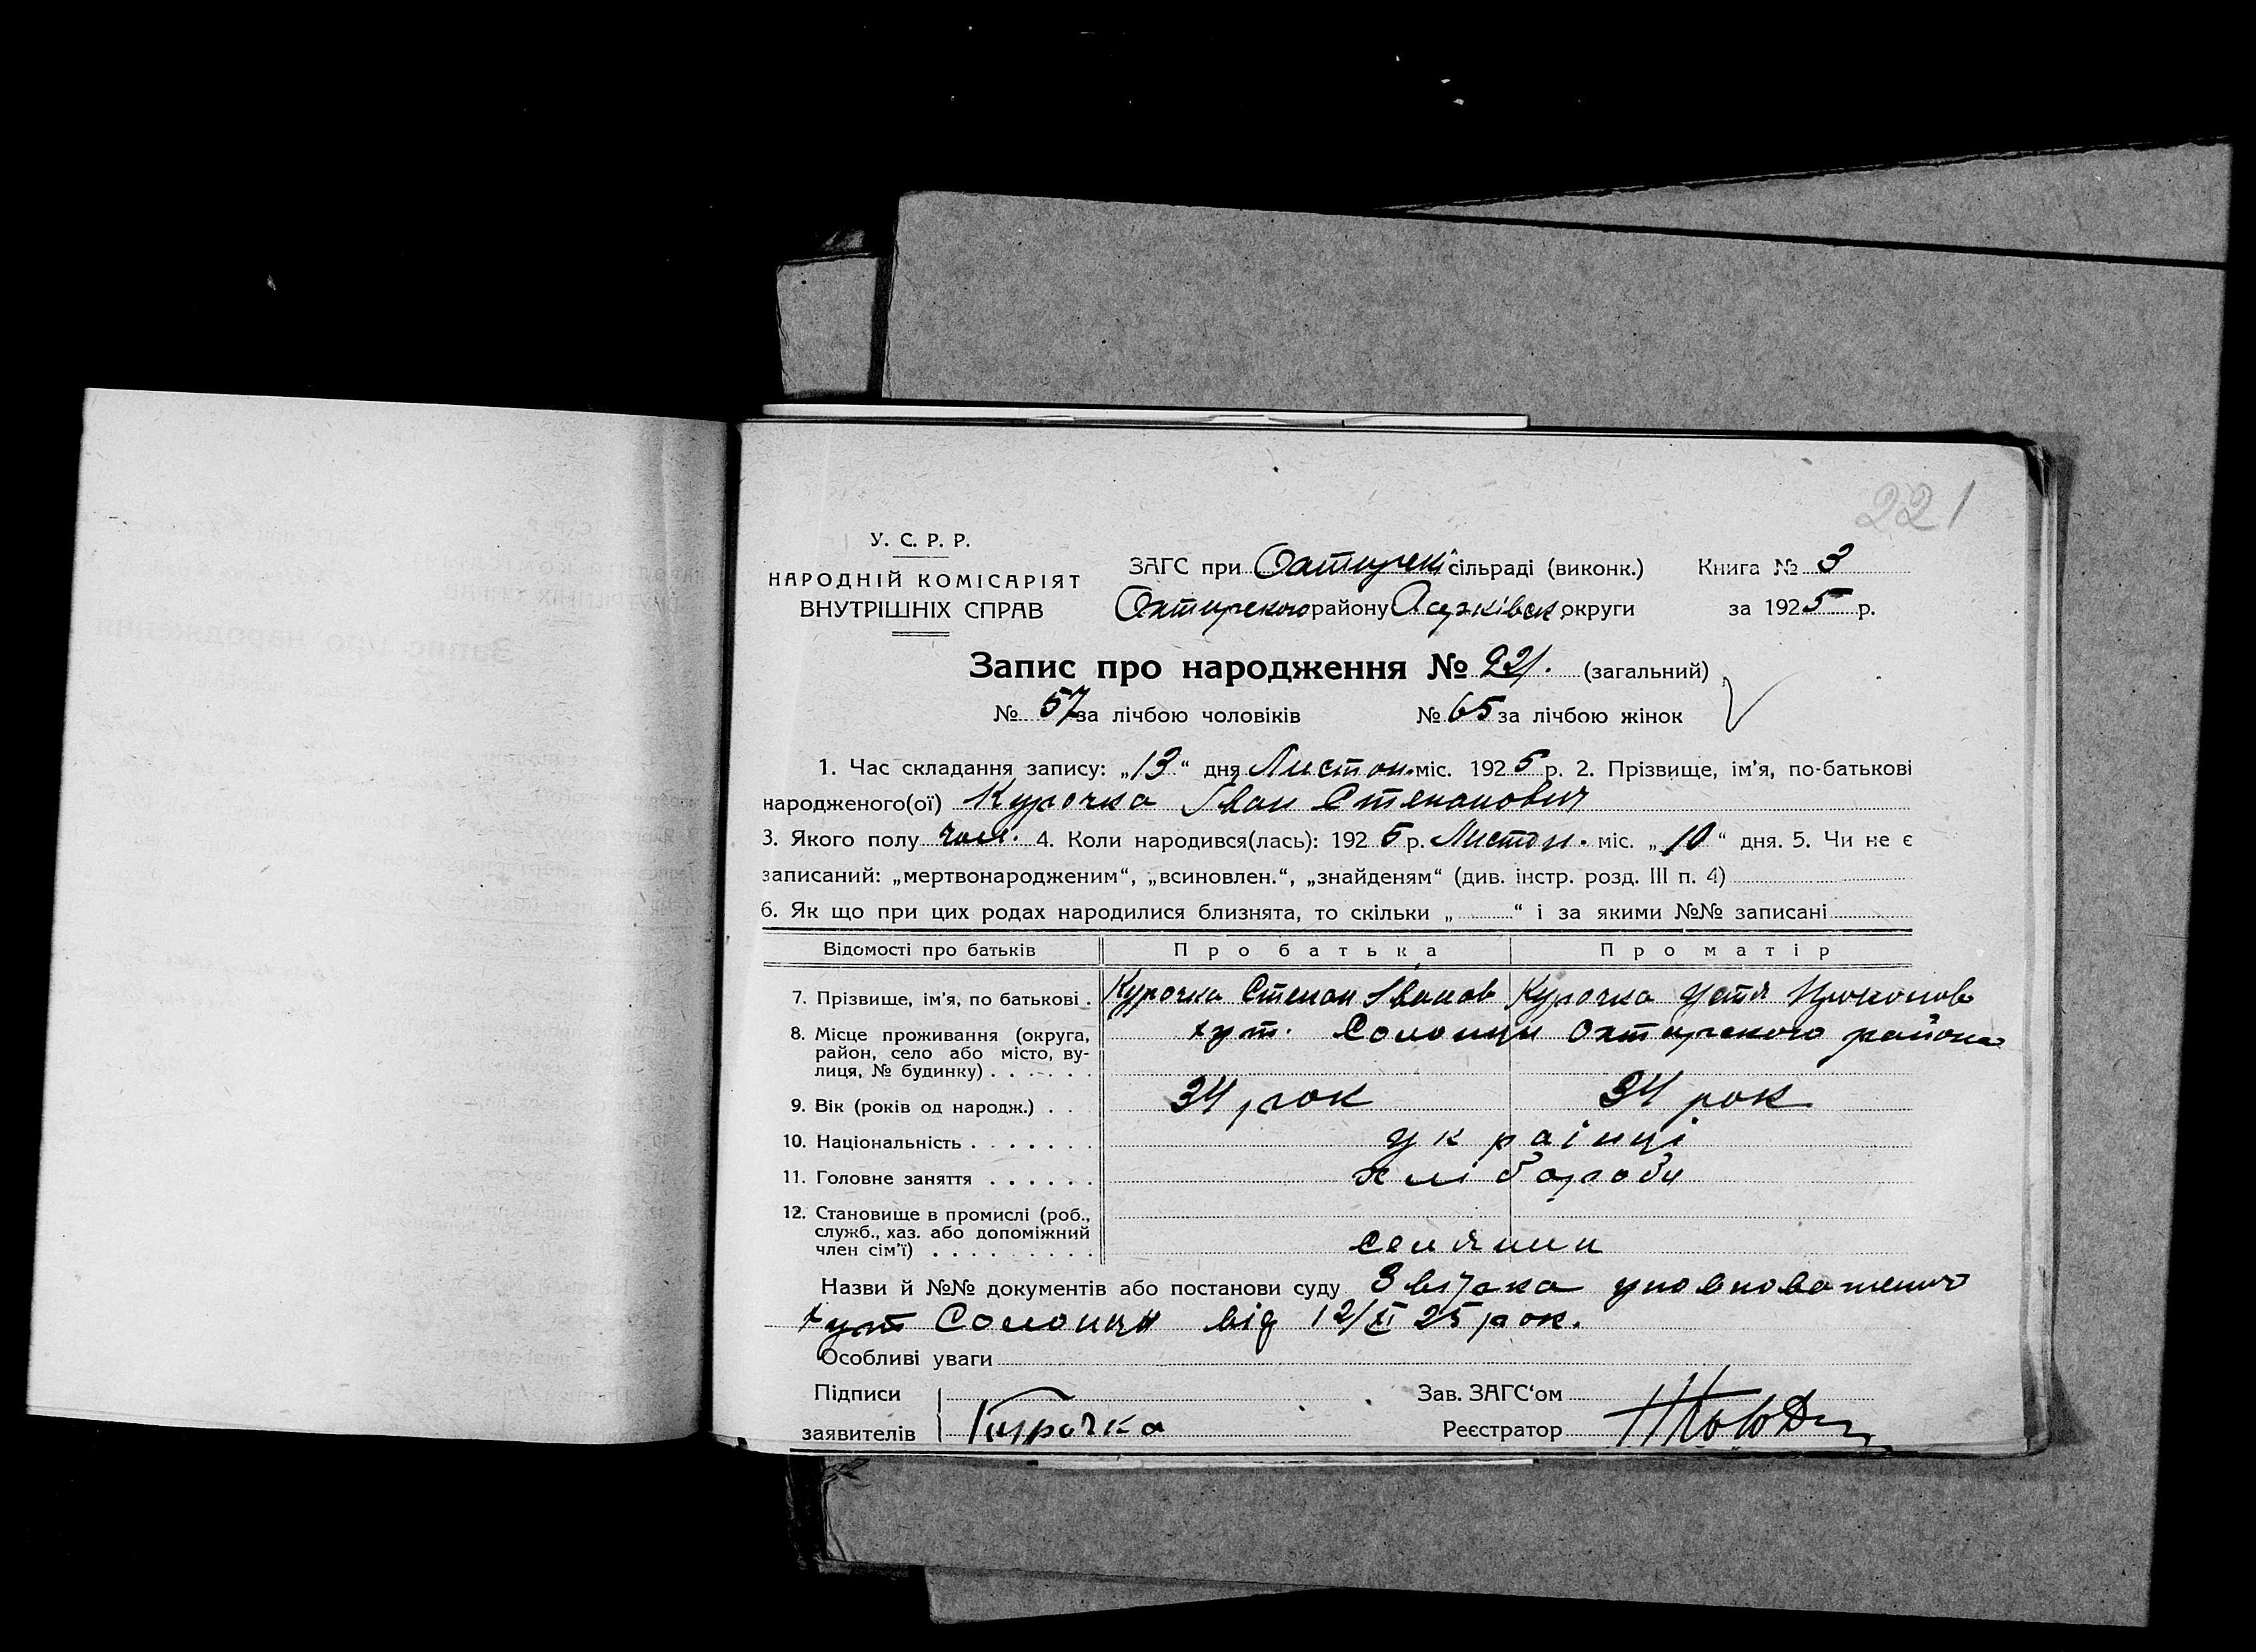 221
У. С. Р. Р.
НАРОДНІЙ КОМІСАРІЯТ
ВНУТРІШНІХ СПРАВ
ЗАГС при Охтирскі сільраді (виконк.) Книга № 3
Охтирского району Харківськ округи за 1925 р.
Запис про народження № 221. (загальний)
№ 57 за лічбою чоловіків № 65 за лічбою жінок
1. Час складання запису: „13“ дня Листоп. міс. 1925 р. 2. Прізвище, ім’я, по-батькові
народженого(ої) Курочка Іван Степанович
3. Якого полу чол. 4. Коли народився(лась): 1925 р. Листоп. міс. „10“ дня. 5. Чи не є
записаний: „мертвонародженим“, „всиновлен.“, „знайденям“ (див. інстр. розд. III п. 4)
6. Як що при цих родах народилися близнята, то скільки „ “ і за якими №№ записані
Відомості про батьків Про батька Про матір
7. Прізвище, ім’я, по батькові . Курочка Степан Іванов Курочка Устя Прокопов
8. Місце проживання (округа, хут. Солонци Охтирского района
район, село або місто, ву-
лиця, № будинку) . . . . . .
9. Вік (років од народж.) . . 34 рок 34 рок
10. Національність . . . . . . . українці
11. Головне заняття . . . . . . хлібороби
12. Становище в промислі (роб.,
служб., хаз. або допоміжний
член сім’ї) . . . . . . . . . селянин
Назви й №№ документів або постанови суду Звірка уповноваженого
хут Солонци від 12/XI 25 рок.
Особливі уваги
Підписи Зав. ЗАГС‘ом
заявителів Курочка Реєстратор